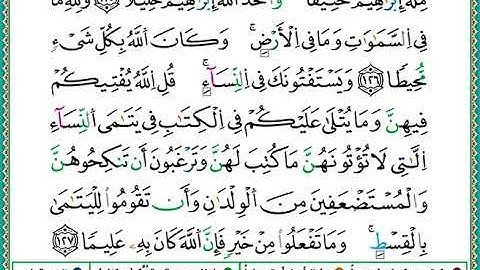 مِلَّةَ إِبْرَٰهِيمَ حَنِيفًا ۗ وَٱتَّخَذَ ٱللَّهُ إِبْرَٰهِيمَ خَلِيلًا ۝١٢٥ وَلِلَّهِ مَا
فِى ٱلسَّمَٰوَٰتِ وَمَا فِى ٱلْأَرْضِ ۚ وَكَانَ ٱللَّهُ بِكُلِّ شَىْءٍ
مُّحِيطًا ۝١٢٦ وَيَسْتَفْتُونَكَ فِى ٱلنِّسَآءِ ۖ قُلِ ٱللَّهُ يُفْتِيكُمْ
فِيهِنَّ وَمَا يُتْلَىٰ عَلَيْكُمْ فِى ٱلْكِتَٰبِ فِى يَتَٰمَى ٱلنِّسَآءِ
ٱلَّٰتِى لَا تُؤْتُونَهُنَّ مَا كُتِبَ لَهُنَّ وَتَرْغَبُونَ أَن تَنكِحُوهُنَّ
وَٱلْمُسْتَضْعَفِينَ مِنَ ٱلْوِلْدَٰنِ وَأَن تَقُومُوا۟ لِلْيَتَٰمَىٰ
بِٱلْقِسْطِ ۚ وَمَا تَفْعَلُوا۟ مِنْ خَيْرٍ فَإِنَّ ٱللَّهَ كَانَ بِهِۦ عَلِيمًا ۝١٢٧